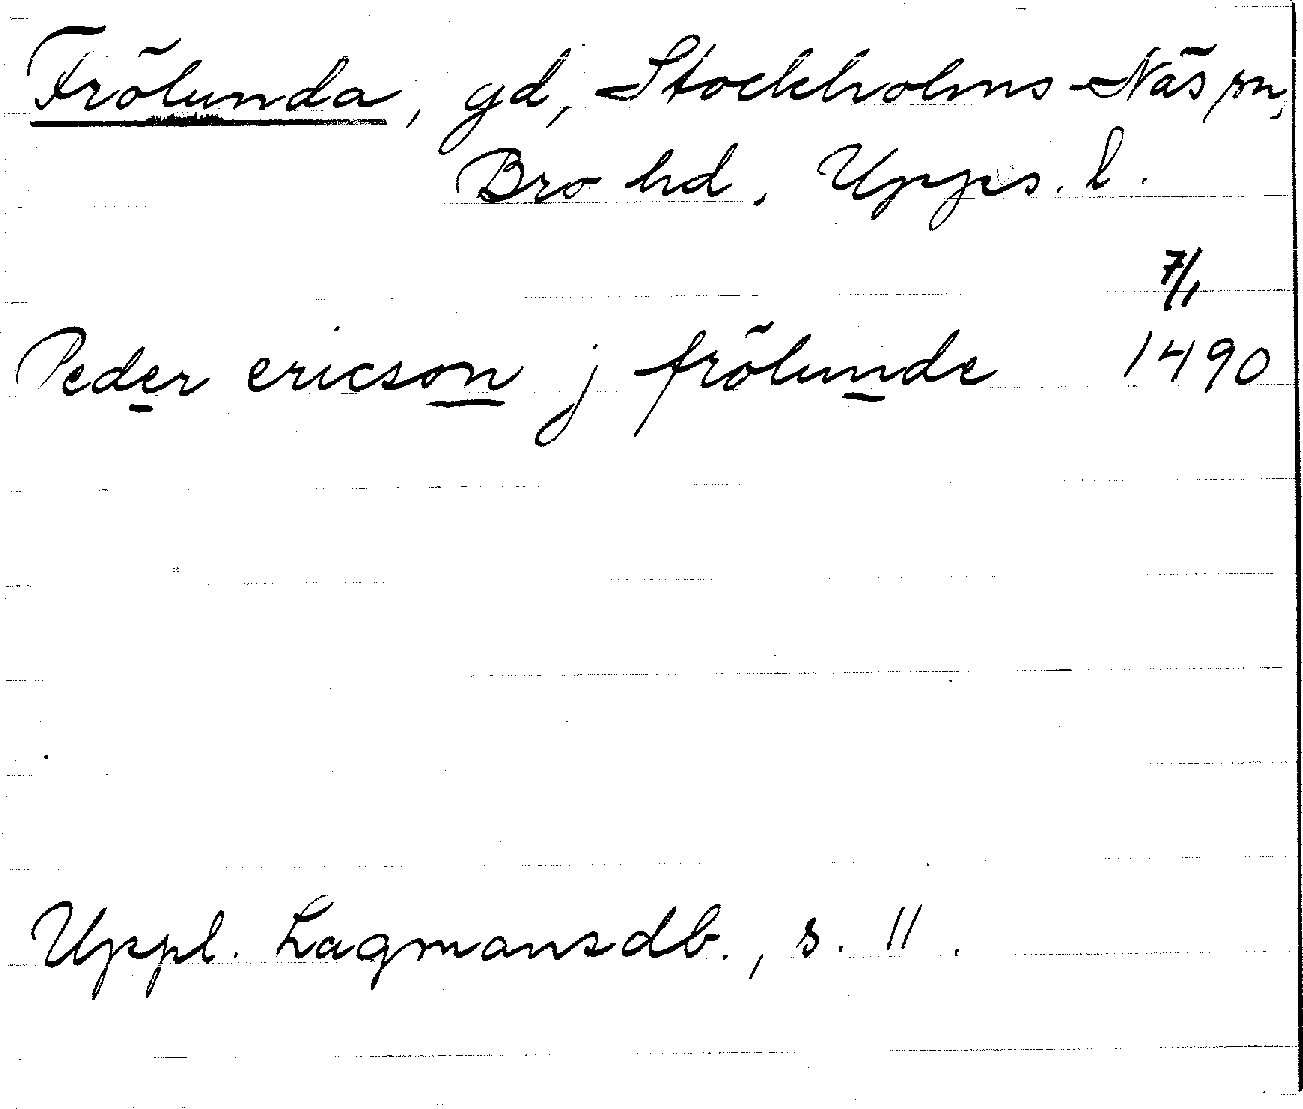 Frölunda, gd, Stockholms-Näs sn,
Bro hd, Upps. l.
7/1
Peder ericson j frölunde 1490
Uppl. Lagmansdb., s. 11.